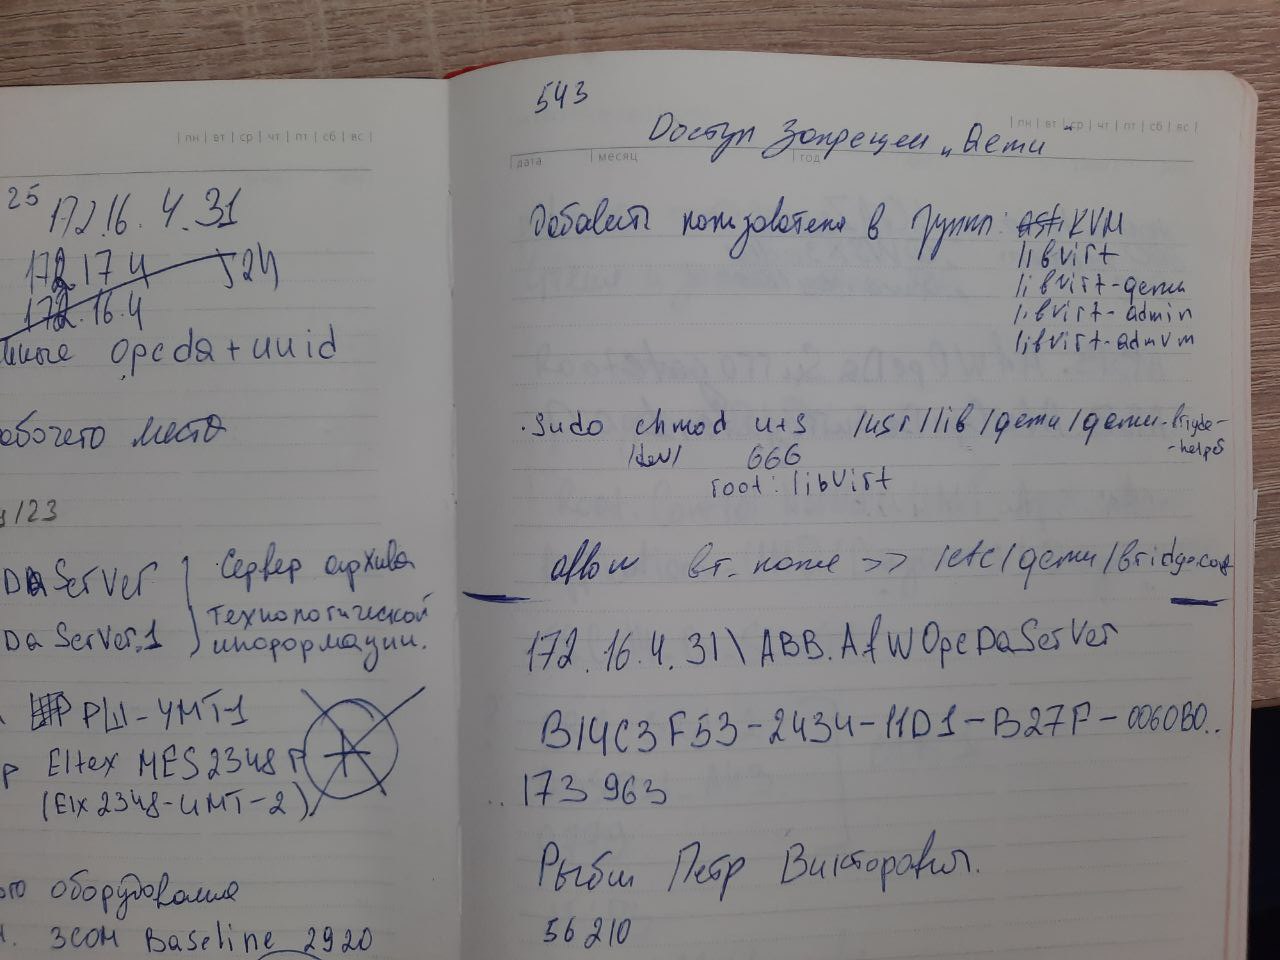 пн вт ср чт пт сб вс
25 172.16.4.31
172.17.4 524
172.16.4
нные opcda+uuid
абочего места
/123
Da Server Сервер архива
Da Server.1 технологической
информации.
РШ-УМТ-1
Eltex MES2348P
(Elx2348-UMT-2)
ого оборудования
3COM Baseline 2920
543
пн вт ср чт пт сб вс
Доступ запрещен „Qemu"
дата месяц год
Добавить пользователя в групп: KVM
libvirt
libvirt-qemu
libvirt-admin
libvirt-admvm
sudo chmod u+s /usr/lib/qemu/qemu-bridge-
-helper
/dev/ 666
root:libvirt
allow br-name >> /etc/qemu/bridge.conf
172.16.4.31\ABB.AfWOpcDaServer
B14C3F53-2434-11D1-B27F-0060B0..
..173963
Рыбин Петр Викторович.
56210